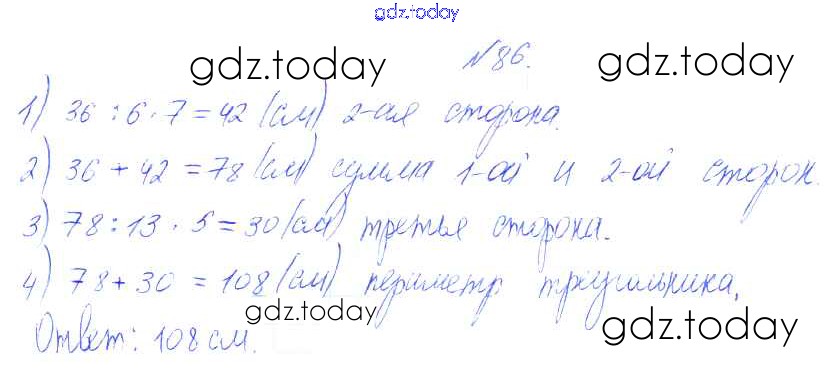 gdz.today
№86.
gdz.today gdz.today
1) 36 : 6 · 7 = 42 (см) 2-ая сторона.
2) 36 + 42 = 78 (см) сумма 1-ой и 2-ой сторон.
3) 78 : 13 · 5 = 30 (см) третья сторона.
4) 78 + 30 = 108 (см) периметр треугольника.
gdz.today gdz.today
Ответ: 108 см.